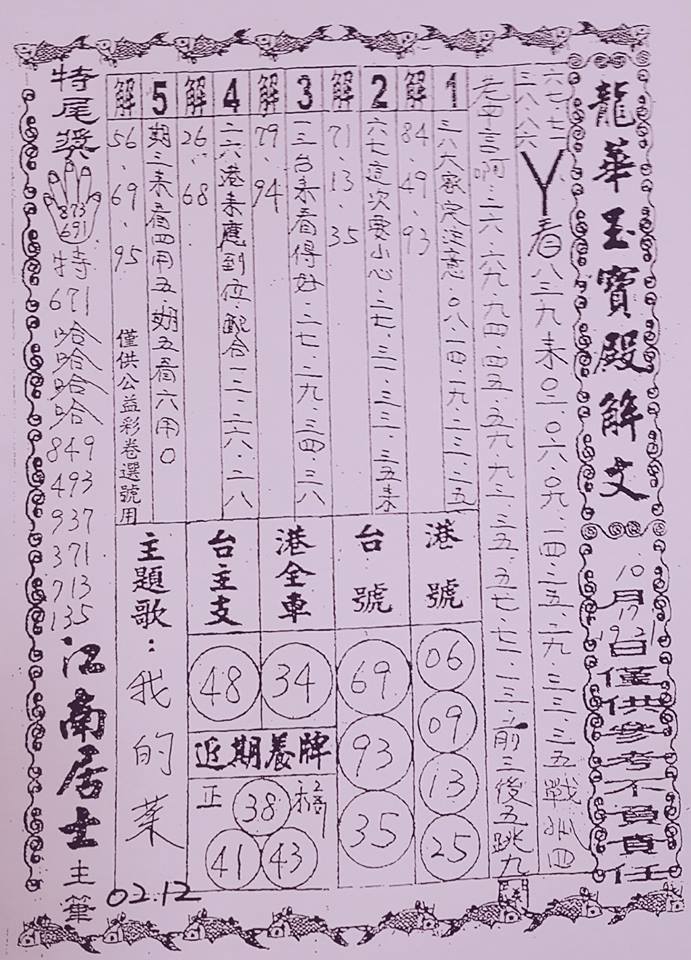 龍華玉寶殿解文
10月17.19.21日僅供參考不負責任
六七七
三八八六
丫看八三九來0二.0六.0九.一四.二五.二九.三三.三五戰
老早言啊:二六.六九.九四.四五.五九.九三.三五.五七.七一.一三.前三後五跳九
1
二八大家定注意.0八.一四.一九.二三.二五
解
84.49.93
2
六七這次要小心.二七.三一.三三.三五來
解
71.13.35
3
一三台來看得好.二七.二九.三四.三八
解
79.94
4
二六港來應到位.配合一二.二六.二八
解
26.68.
5
期三來看四用五.期五看六用0
解
56.69.95
僅供公益彩卷選號用
港號
06
09
13
25
台號
69
93
35
港全車
34
台主支
48
近期養牌
正
38
41
43
主題歌:我的菜
特尾獎
873
691
特
671
哈哈哈哈
849
493
937
371
713
135
江南居士主筆
02.12